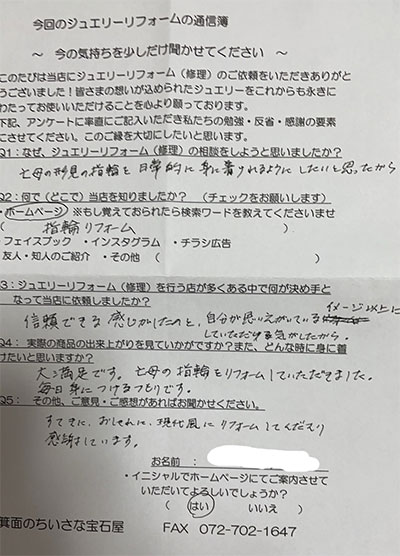 今回のジュエリーリフォームの通信簿
～ 今の気持ちを少しだけ聞かせてください ～
このたびは当店にジュエリーリフォーム（修理）のご依頼をいただきありがと
うございました！皆さまの想いが込められたジュエリーをこれからも永きに
わたってお使いいただけることを心より願っております。
下記、アンケートに率直にご記入いただき私たちの勉強・反省・感謝の要素
にさせてください。このご縁を大切にしたいと思います。
Q1：なぜ、ジュエリーリフォーム（修理）の相談をしようと思いましたか？
亡母の形見の指輪を日常的に身に着けれるようにしたいと思ったから
Q2：何で（どこで）当店を知りましたか？ （チェックをお願いします）
・ホームページ ※もし覚えておられたら検索ワードを教えてくださいませ
（ 指輪リフォーム ）
・フェイスブック ・インスタグラム ・チラシ広告
・友人・知人のご紹介 ・その他（ ）
3：ジュエリーリフォーム（修理）を行う店が多くある中で何が決め手と
なって当店に依頼しましたか？
信頼できる感じがしたのと、自分が思いえがいているイメージ以上に
していただける気がしたから。
Q4： 実際の商品の出来上がりを見ていかがですか？また、どんな時に身に着
けたいと思いますか？
大満足です。亡母の指輪をリフォームしていただきました。
毎日身につけるつもりです。
Q5： その他、ご意見・ご感想があればお聞かせください。
すてきに、おしゃれに、現代風にリフォームしてくださり
感謝しています。
お名前：
・イニシャルでホームページにてご案内させて
いただいてよろしいでしょうか？
（ はい いいえ ）
箕面のちいさな宝石屋 FAX 072-702-1647